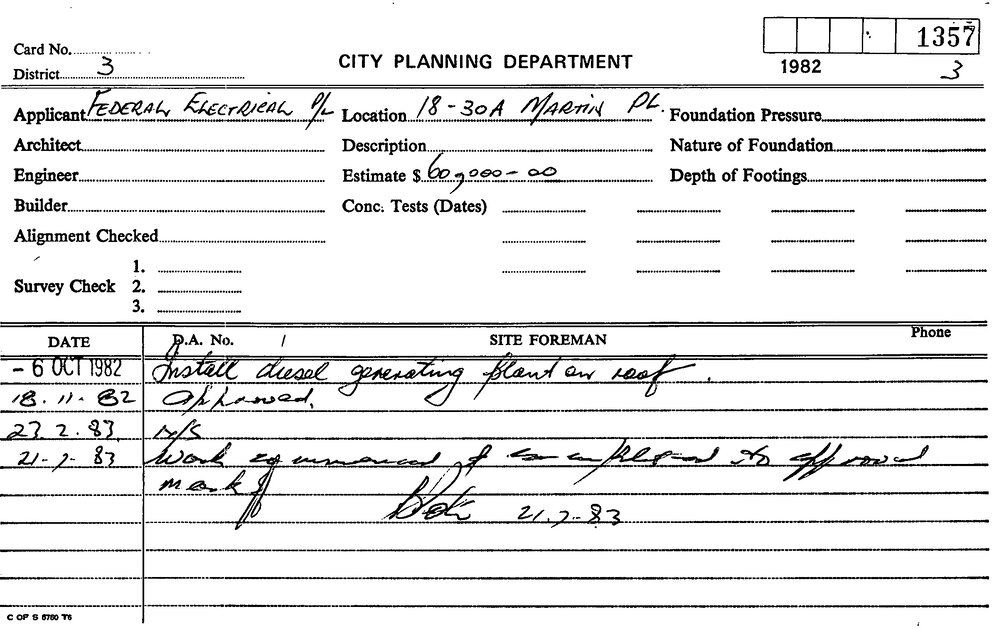 1357
Card No.
1982
3
District 3
CITY PLANNING DEPARTMENT
Applicant FEDERAL ELECTRICAL P/L Location 18-30A MARTIN PL. Foundation Pressure
Architect Description Nature of Foundation
Engineer Estimate $ 60,000-00 Depth of Footings
Builder Conc. Tests (Dates)
Alignment Checked
1.
Survey Check 2.
3.
DATE D.A. No. / SITE FOREMAN Phone
- 6 OCT 1982 Install diesel generating plant on roof.
18.11.82 Approved.
23.2.83 N/S
21-7-83 Work commenced & completed to approval
mark
21.7.83
C OF S 6760 T6